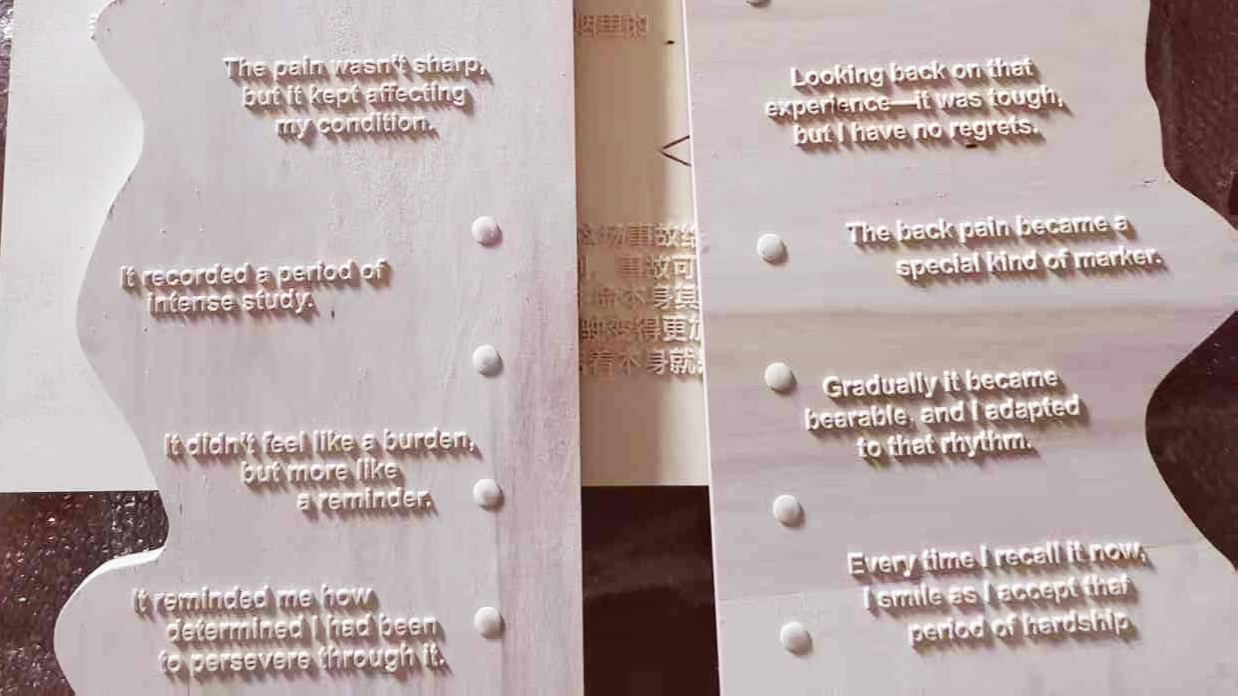 The pain wasn't sharp,
but it kept affecting
my condition.
It recorded a period of
intense study.
It didn't feel like a burden,
but more like
a reminder.
It reminded me how
determined I had been
to persevere through it.
烟里的
事故给
事故可
命本身其
得更加
着本身就
Looking back on that
experience—it was tough,
but I have no regrets.
The back pain became a
special kind of marker.
Gradually it became
bearable, and I adapted
to that rhythm.
Every time I recall it now,
I smile as I accept that
period of hardship.